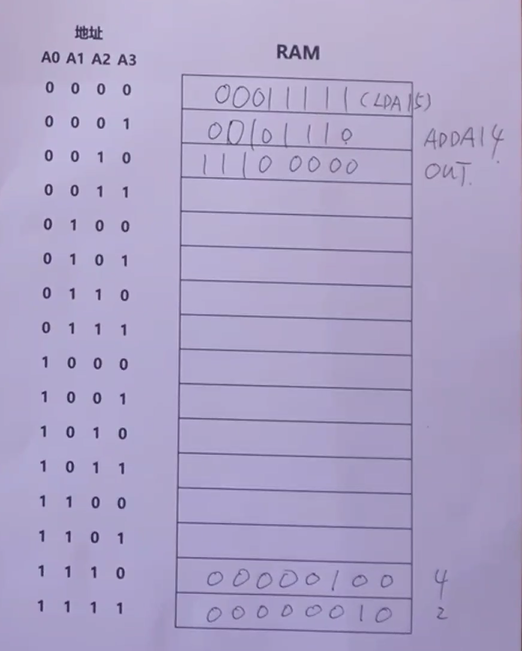 地址
A0 A1 A2 A3 RAM
0 0 0 0 00011111 (LDA15)
0 0 0 1 00101110 ADDA14
0 0 1 0 11100000 OUT.
0 0 1 1
0 1 0 0
0 1 0 1
0 1 1 0
0 1 1 1
1 0 0 0
1 0 0 1
1 0 1 0
1 0 1 1
1 1 0 0
1 1 0 1
1 1 1 0 00000100 4
1 1 1 1 00000010 2